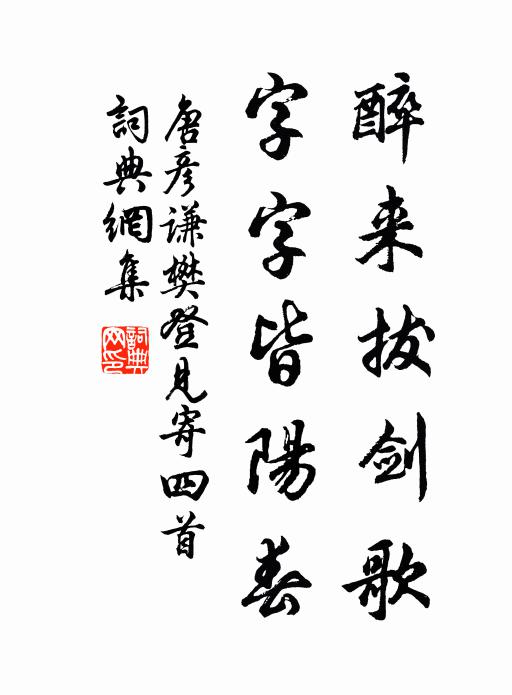 醉来拔剑歌
字字皆陽春
唐彥谦樊登見寄四首
詞典網集
詞典网印